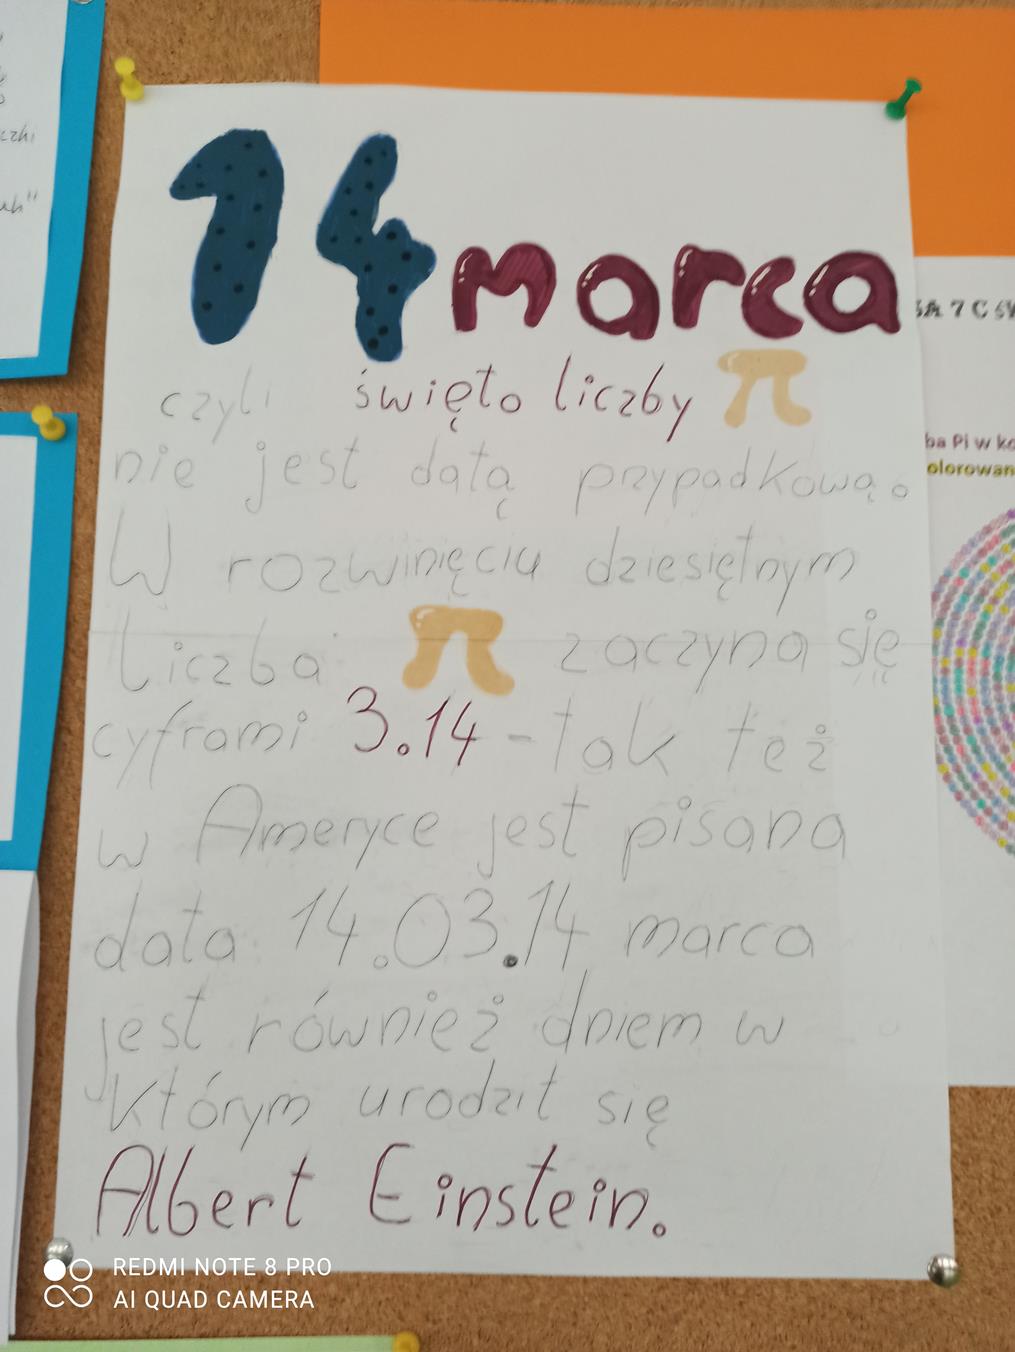 14 marca
czyli święto liczby π
nie jest datą przypadkową.
W rozwinięciu dziesiętnym
liczba π zaczyna się
cyframi 3.14 - tak też
w Ameryce jest pisana
data 14.03.14 marca
jest również dniem w
którym urodził się
Albert Einstein.
ba Pi w ko
olorowan
REDMI NOTE 8 PRO
AI QUAD CAMERA